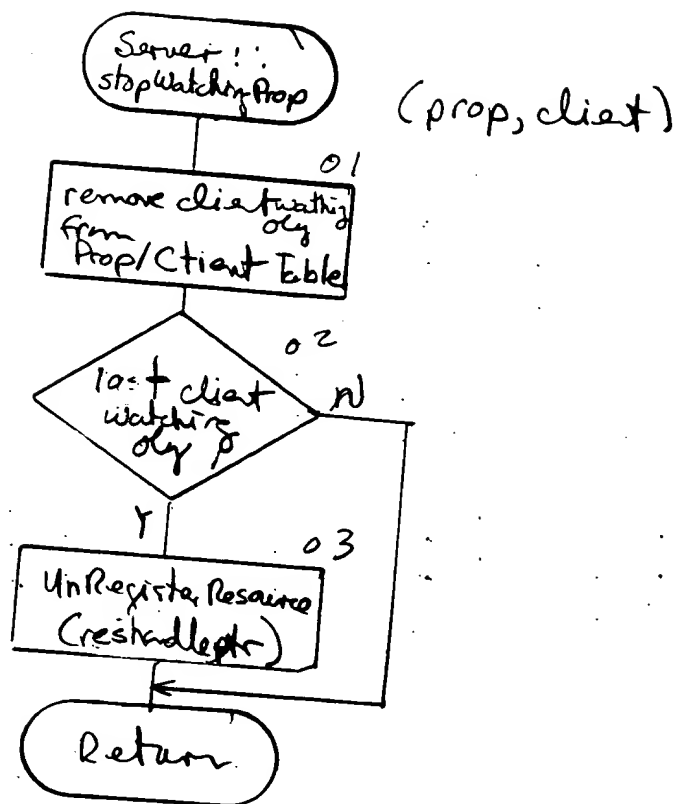 Server::
stopWatchingProp
(prop, client)
01
remove client watching
obj
from
Prop/Client Table
02
last client
watching
obj
N
Y
03
UnRegisterResource
(reshandleptr)
Return